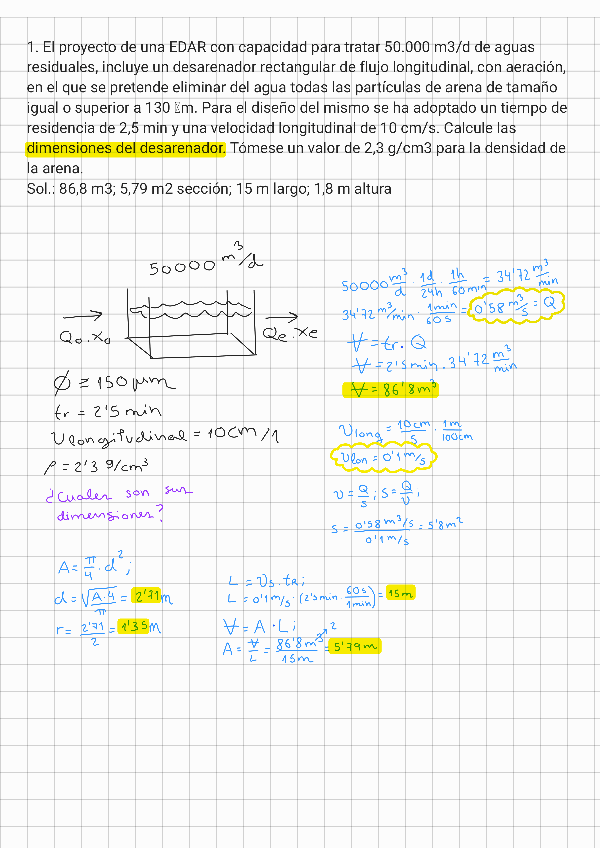 1. El proyecto de una EDAR con capacidad para tratar 50.000 m3/d de aguas
residuales, incluye un desarenador rectangular de flujo longitudinal, con aeración,
en el que se pretende eliminar del agua todas las partículas de arena de tamaño
igual o superior a 130 m. Para el diseño del mismo se ha adoptado un tiempo de
residencia de 2,5 min y una velocidad longitudinal de 10 cm/s. Calcule las
dimensiones del desarenador. Tómese un valor de 2,3 g/cm3 para la densidad de
la arena.
Sol.: 86,8 m3; 5,79 m2 sección; 15 m largo; 1,8 m altura
50000 m³/d
Qo.Xo
Qe.Xe
Ø ≥ 150 μm
tr = 2'5 min
Vlongitudinal = 10cm/1
ρ = 2'3 g/cm³
¿Cuales son sus
dimensiones?
50000 m³/d · 1d/24h · 1h/60min = 34'72 m³/min
34'72 m³/min · 1min/60s = 0'58 m³/s = Q
V = tr. Q
V = 2'5min . 34'72 m³/min
V = 86'8m³
Vlong = 10cm/s · 1m/100cm
Vlon = 0'1m/s
v = Q/s ; S = Q/v ;
S = 0'58 m³/s / 0'1m/s = 5'8m²
A = π/4 · d² ;
d = √A·4/π = 2'71m
r = 2'71/2 = 1'35m
L = Vs . tR ;
L = 0'1m/s · (2'5min · 60s/1min) = 15m
V = A · L ;
A = V/L = 86'8m³/15m = 5'79m
2